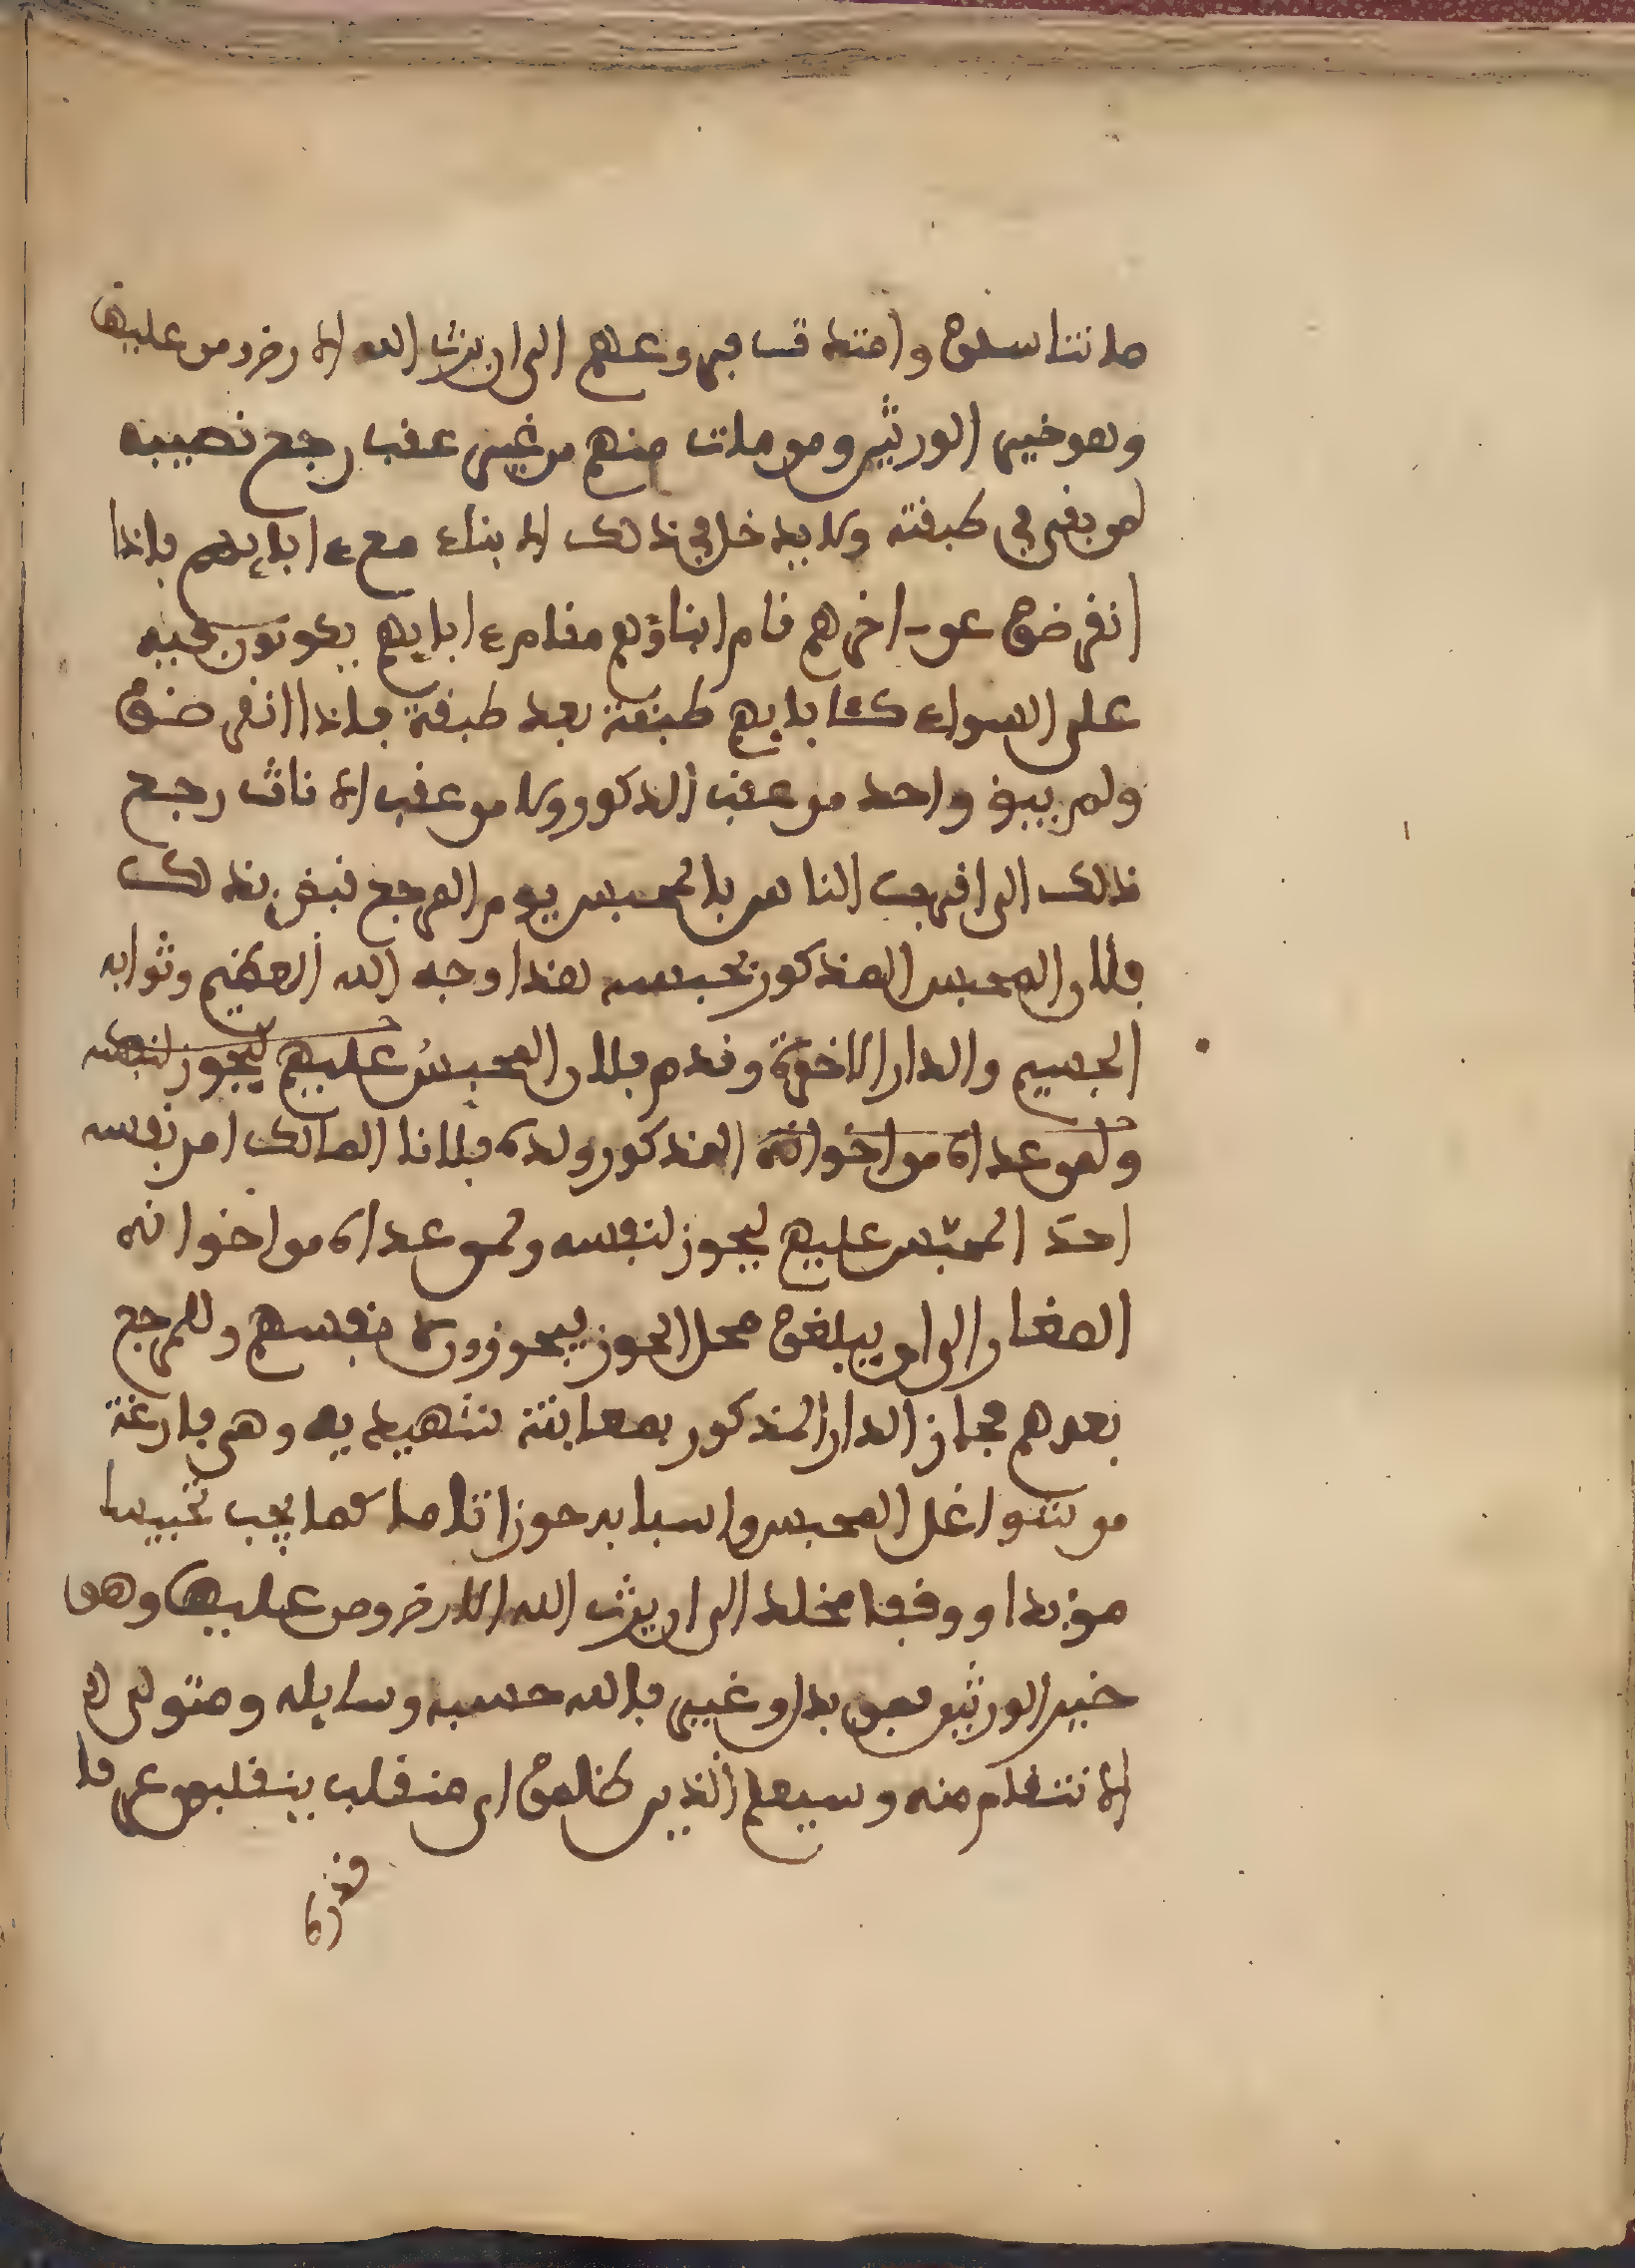 ما تناسلوا وامتدت فروعهم الى ان يرث الله الارض ومن عليها
وهو خير الورثين ومن مات منهم من غير عقب رجع نصيبه
لمن بقي في طبقته ولا يدخل في ذلك الابناء مع ءابايهم فاذا
انقرضوا عن اخرهم قام ابناؤهم مقام ءابايهم يكونون فيه
على السواء كئابايهم طبقة بعد طبقة فاذا انقرضوا
ولم يبق واحد من عقب الذكور ولا من عقب الاناث رجع
ذلك الى اقرب الناس بالمحبس يوم المرجع بذلك
فلان المحبس المذكور بحبسه هذا وجه الله العظيم وثوابه
الجسيم والدار الاخرة وقدم فلان المحبس عليهم ليحوز لنفسه
ولمن عداه من اخوانه المذكور ولده فلانا المالك امر نفسه
احد المحبس عليهم ليحوز لنفسه ولمن عداه من اخوانه
الصغار الى ان يبلغوا محل الحوز فيحوزون لانفسهم وللمرجع
بعدهم فحاز الدار المذكور بمعاينة شهيديه وهي فارغة
من شواغل المحبس واسبابه حوزا تاما كما يجب تحبيسا
مؤبدا ووقفا مخلدا الى ان يرث الله الارض ومن عليها وهو
خير الورثين فمن بدل وغير فالله حسبه وسايله ومتولى
الانتقام منه وسيعلم الذين ظلموا اي منقلب ينقلبون عرفا
قدره